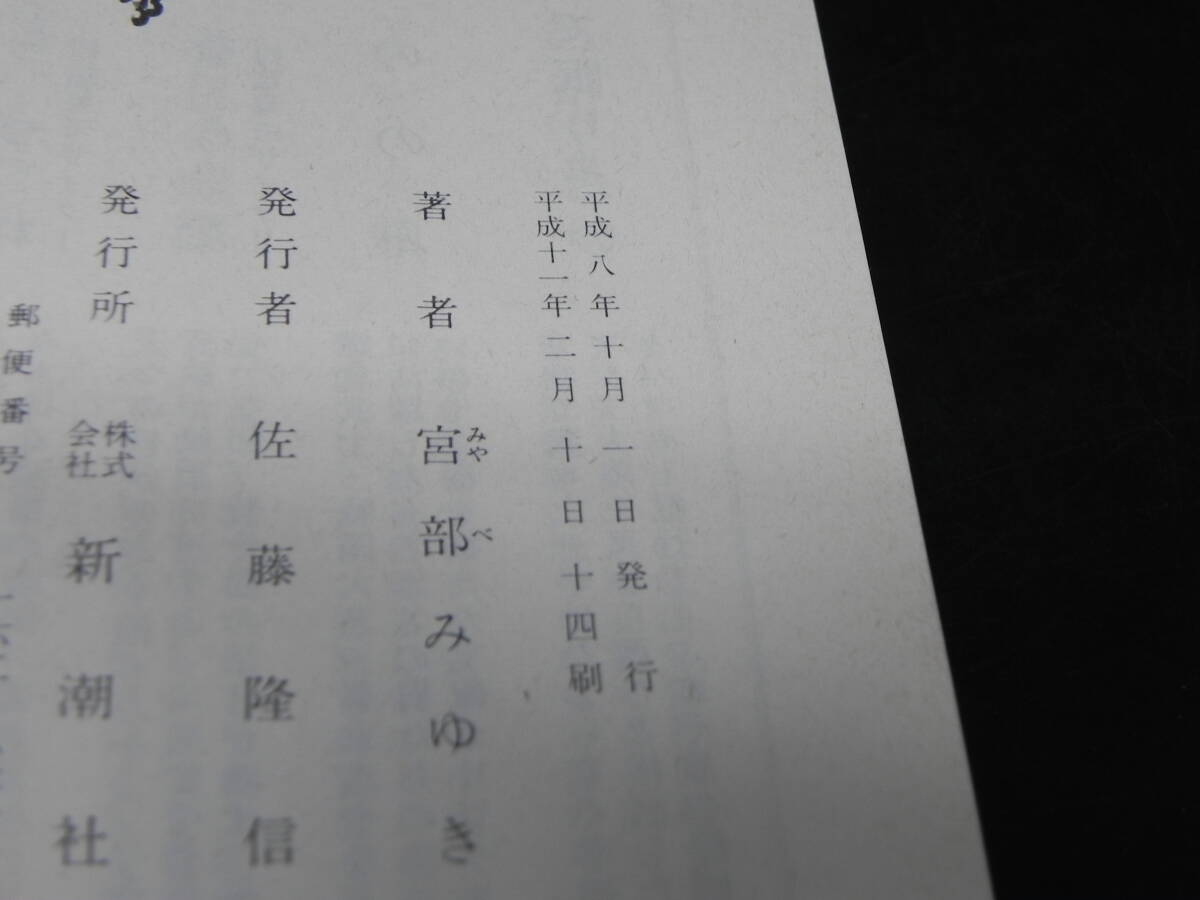 平成八年十月一日発行
平成十一年二月十日十四刷
著者 宮部みゆき
みやべ
発行者 佐藤隆信
発行所 株式会社新潮社
郵便番号